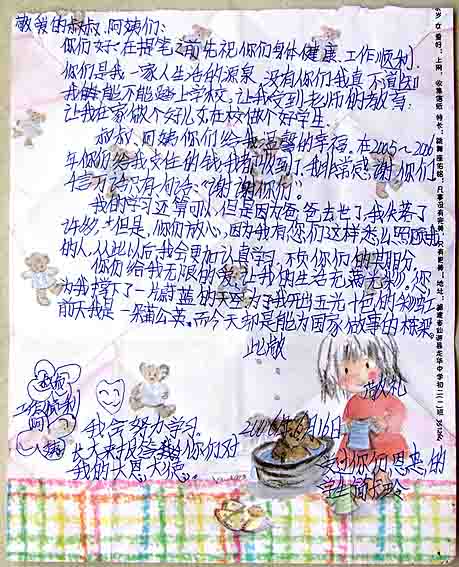 敬爱的叔叔、阿姨们:
你们好!在提笔之前先祝你们身体健康、工作顺利.
你们是我一家人生活的源泉,没有你们我真不道知
我能不能踏上学校,让我受到老师的教育;
让我在家做个好儿女在校做个好学生.
叔叔、阿姨你们给我温馨的幸福.在2005~2006
年你们给我寄任的钱我都收到了,我非常感谢你们.
千言万语只有一句话:"谢谢你们".
我的学习还算可以,但是因为爸爸去世了我失落了
许多.但是,你们放心,因为我有您们这样悉心照顾我
的人,从此以后我会更加认真学习,不负你们的其期分,
你们给我无限的爱,让我的生活充满光彩》.您,
为我撑下了一片蔚蓝的天空为了我亮出五光十色的彩虹
前天我是一朵蒲公英.而今天却是能为国家做事的栋梁.
此致
敬礼
叔叔
工作顺利
阿姨
我会努力学习
长大来报答你们对
我的大恩大德.
2006年6月16日
受过你们恩惠的
学生
岁 女 爱好:上网,收集信纸 特长:跳舞 座佑铭:凡事没有完美,只有更美!地址:福建省仙游县龙华中学初二